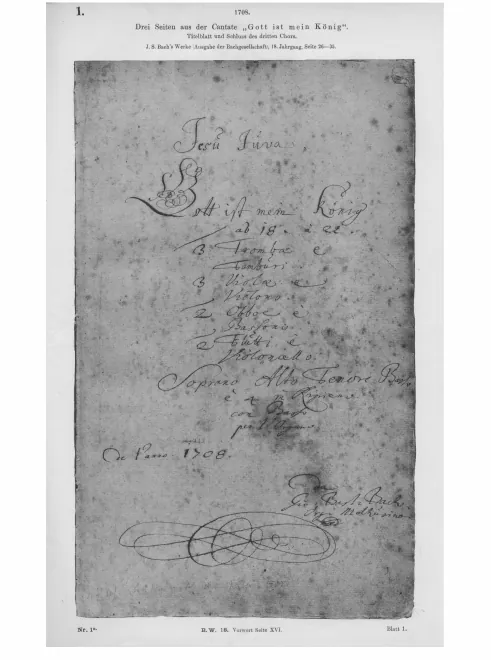 1.
1708.
Drei Seiten aus der Cantate „Gott ist mein König“.
Titelblatt und Schluss des dritten Chors.
J. S. Bach's Werke (Ausgabe der Bachgesellschaft), 18. Jahrgang, Seite
Jesu Juva
Gott ist mein König
ab 18. è 22.
3 Trombæ e
Tamburi
3 Violæ e
Violono.
2 Oboe e
Bassono
2 Flutti è
Violoncello.
Soprano Alto Tenore Basso
è 4 in Ripieno
con
per l'Organo
De l'anno 1708.
da
Gio. Bast. Bach
Org. Molhusino
Nr. 1a.
B.W. 18. Vorwort Seite XVI.
Blatt 1.